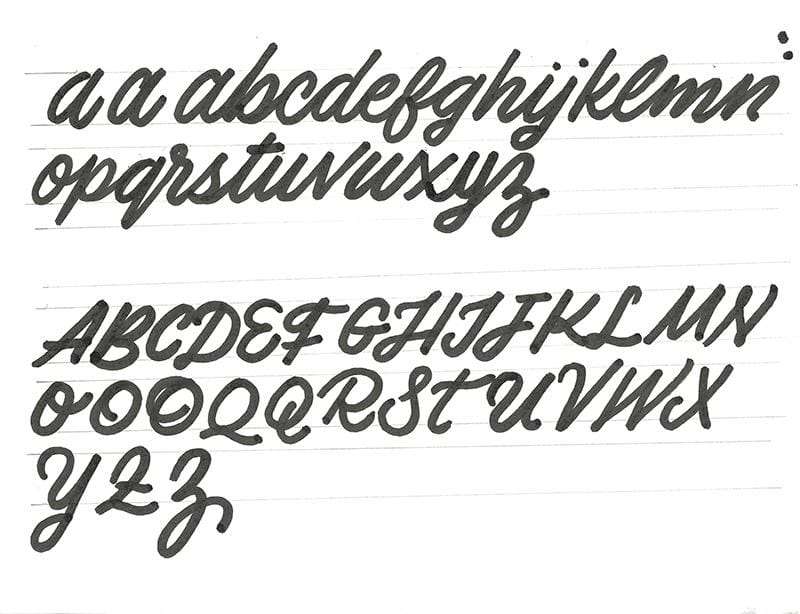 a a abcdefghijklmn
opqrstuvwxyz
ABCDEFGHIJKLMN
OOOQQRSTUVWX
YZZ